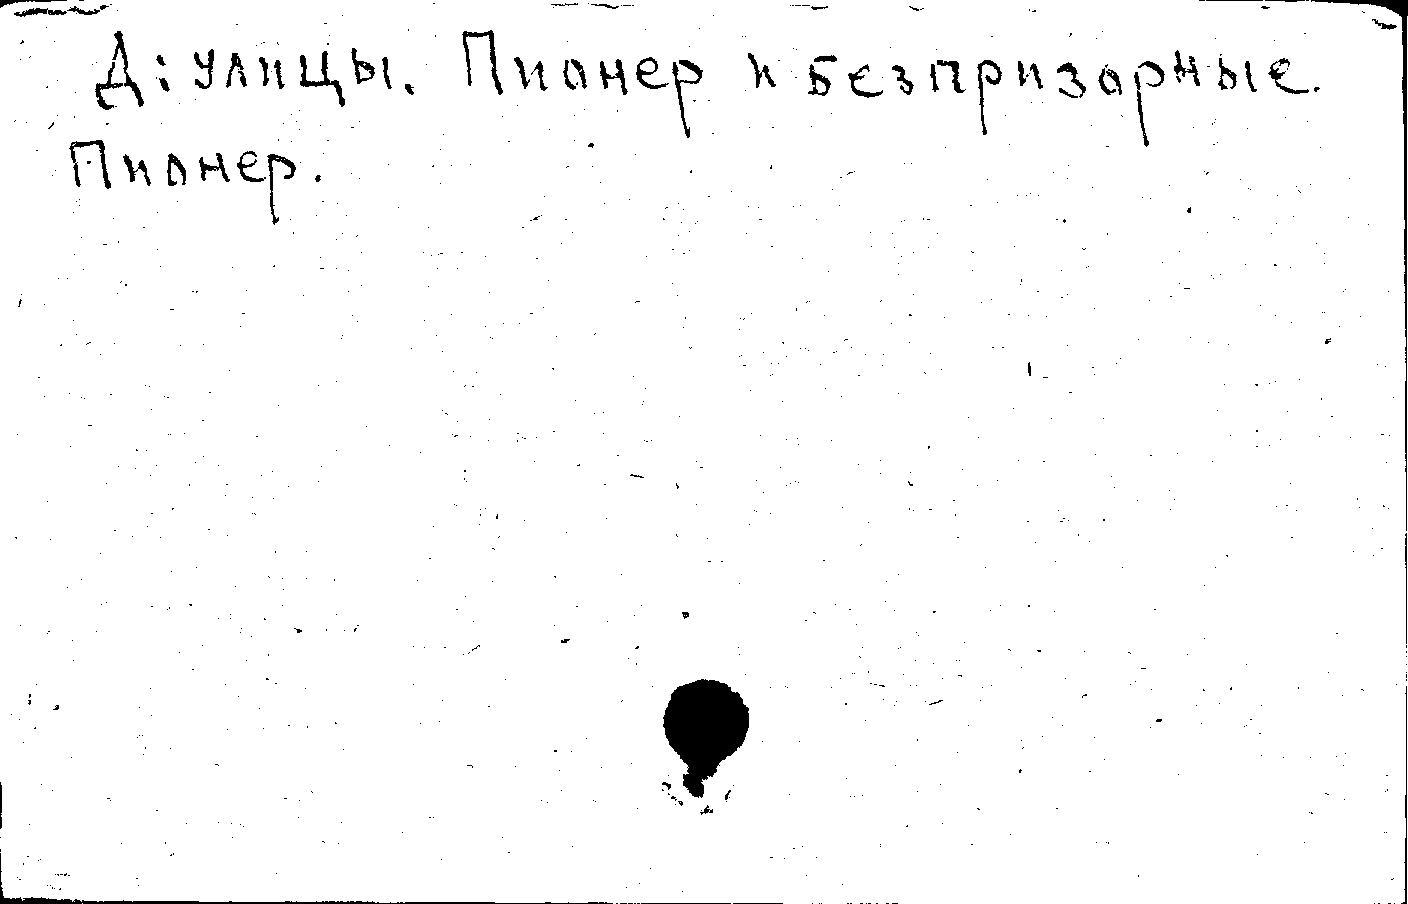 Д: улицы. Пионер и безпризорные.
Пионер.